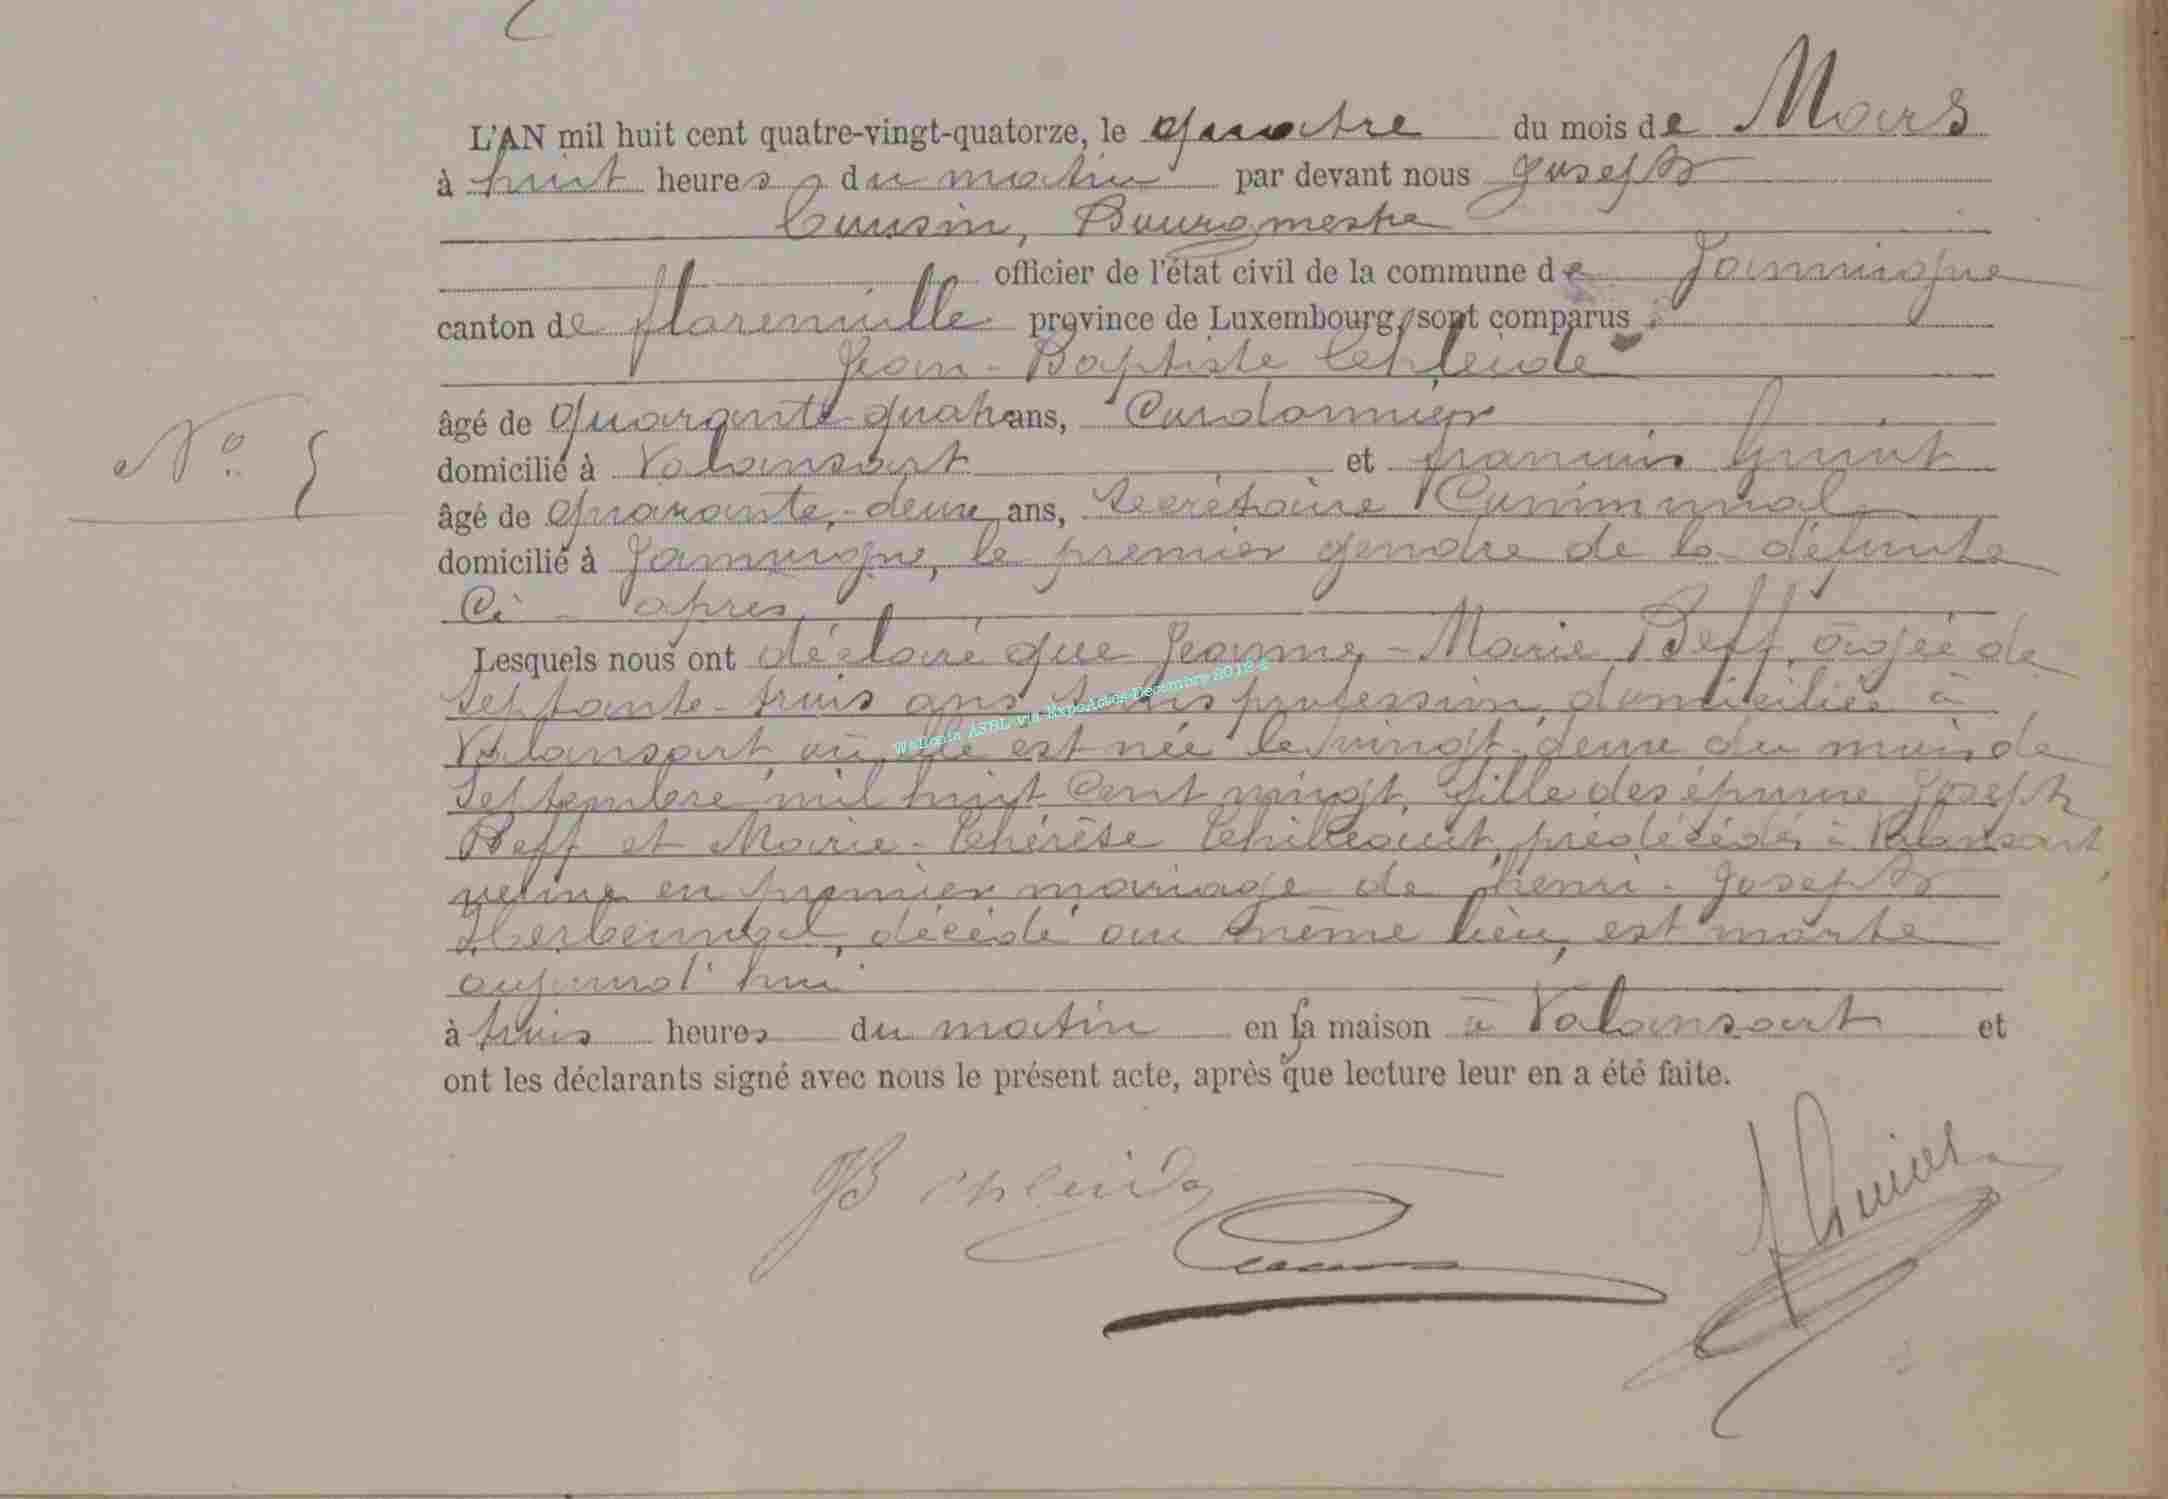 L'AN mil huit cent quatre-vingt-quatorze, le quatre du mois de Mars
à huit heures du matin par devant nous Joseph
Cousin, Bourgmestre
officier de l'état civil de la commune de Jamoigne
canton de florenville province de Luxembourg, sont comparus
Jean-Baptiste
âgé de quarante-quatre ans, Cordonnier
N° 5
domicilié à Valansart et françois
âgé de quarante-deux ans, Secrétaire Communal
domicilié à Jamoigne, le premier gendre de la défunte
Ci-après
Lesquels nous ont déclaré que Jeanne-Marie Beff, âgée de
septante-trois ans, sans profession, domiciliée à
Valansart où elle est née le vingt-deux du mois de
Septembre mil huit Cent vingt, fille des époux Joseph
Beff et Marie-Thérèse prédécédés à Valansart,
veuve en premier mariage de henri-Joseph
décédé au même lieu, est morte
aujourd'hui
à trois heures du matin en sa maison à Valansart et
ont les déclarants signé avec nous le présent acte, après que lecture leur en a été faite.
Wallonia ASBL via ExpoActes-Décembre